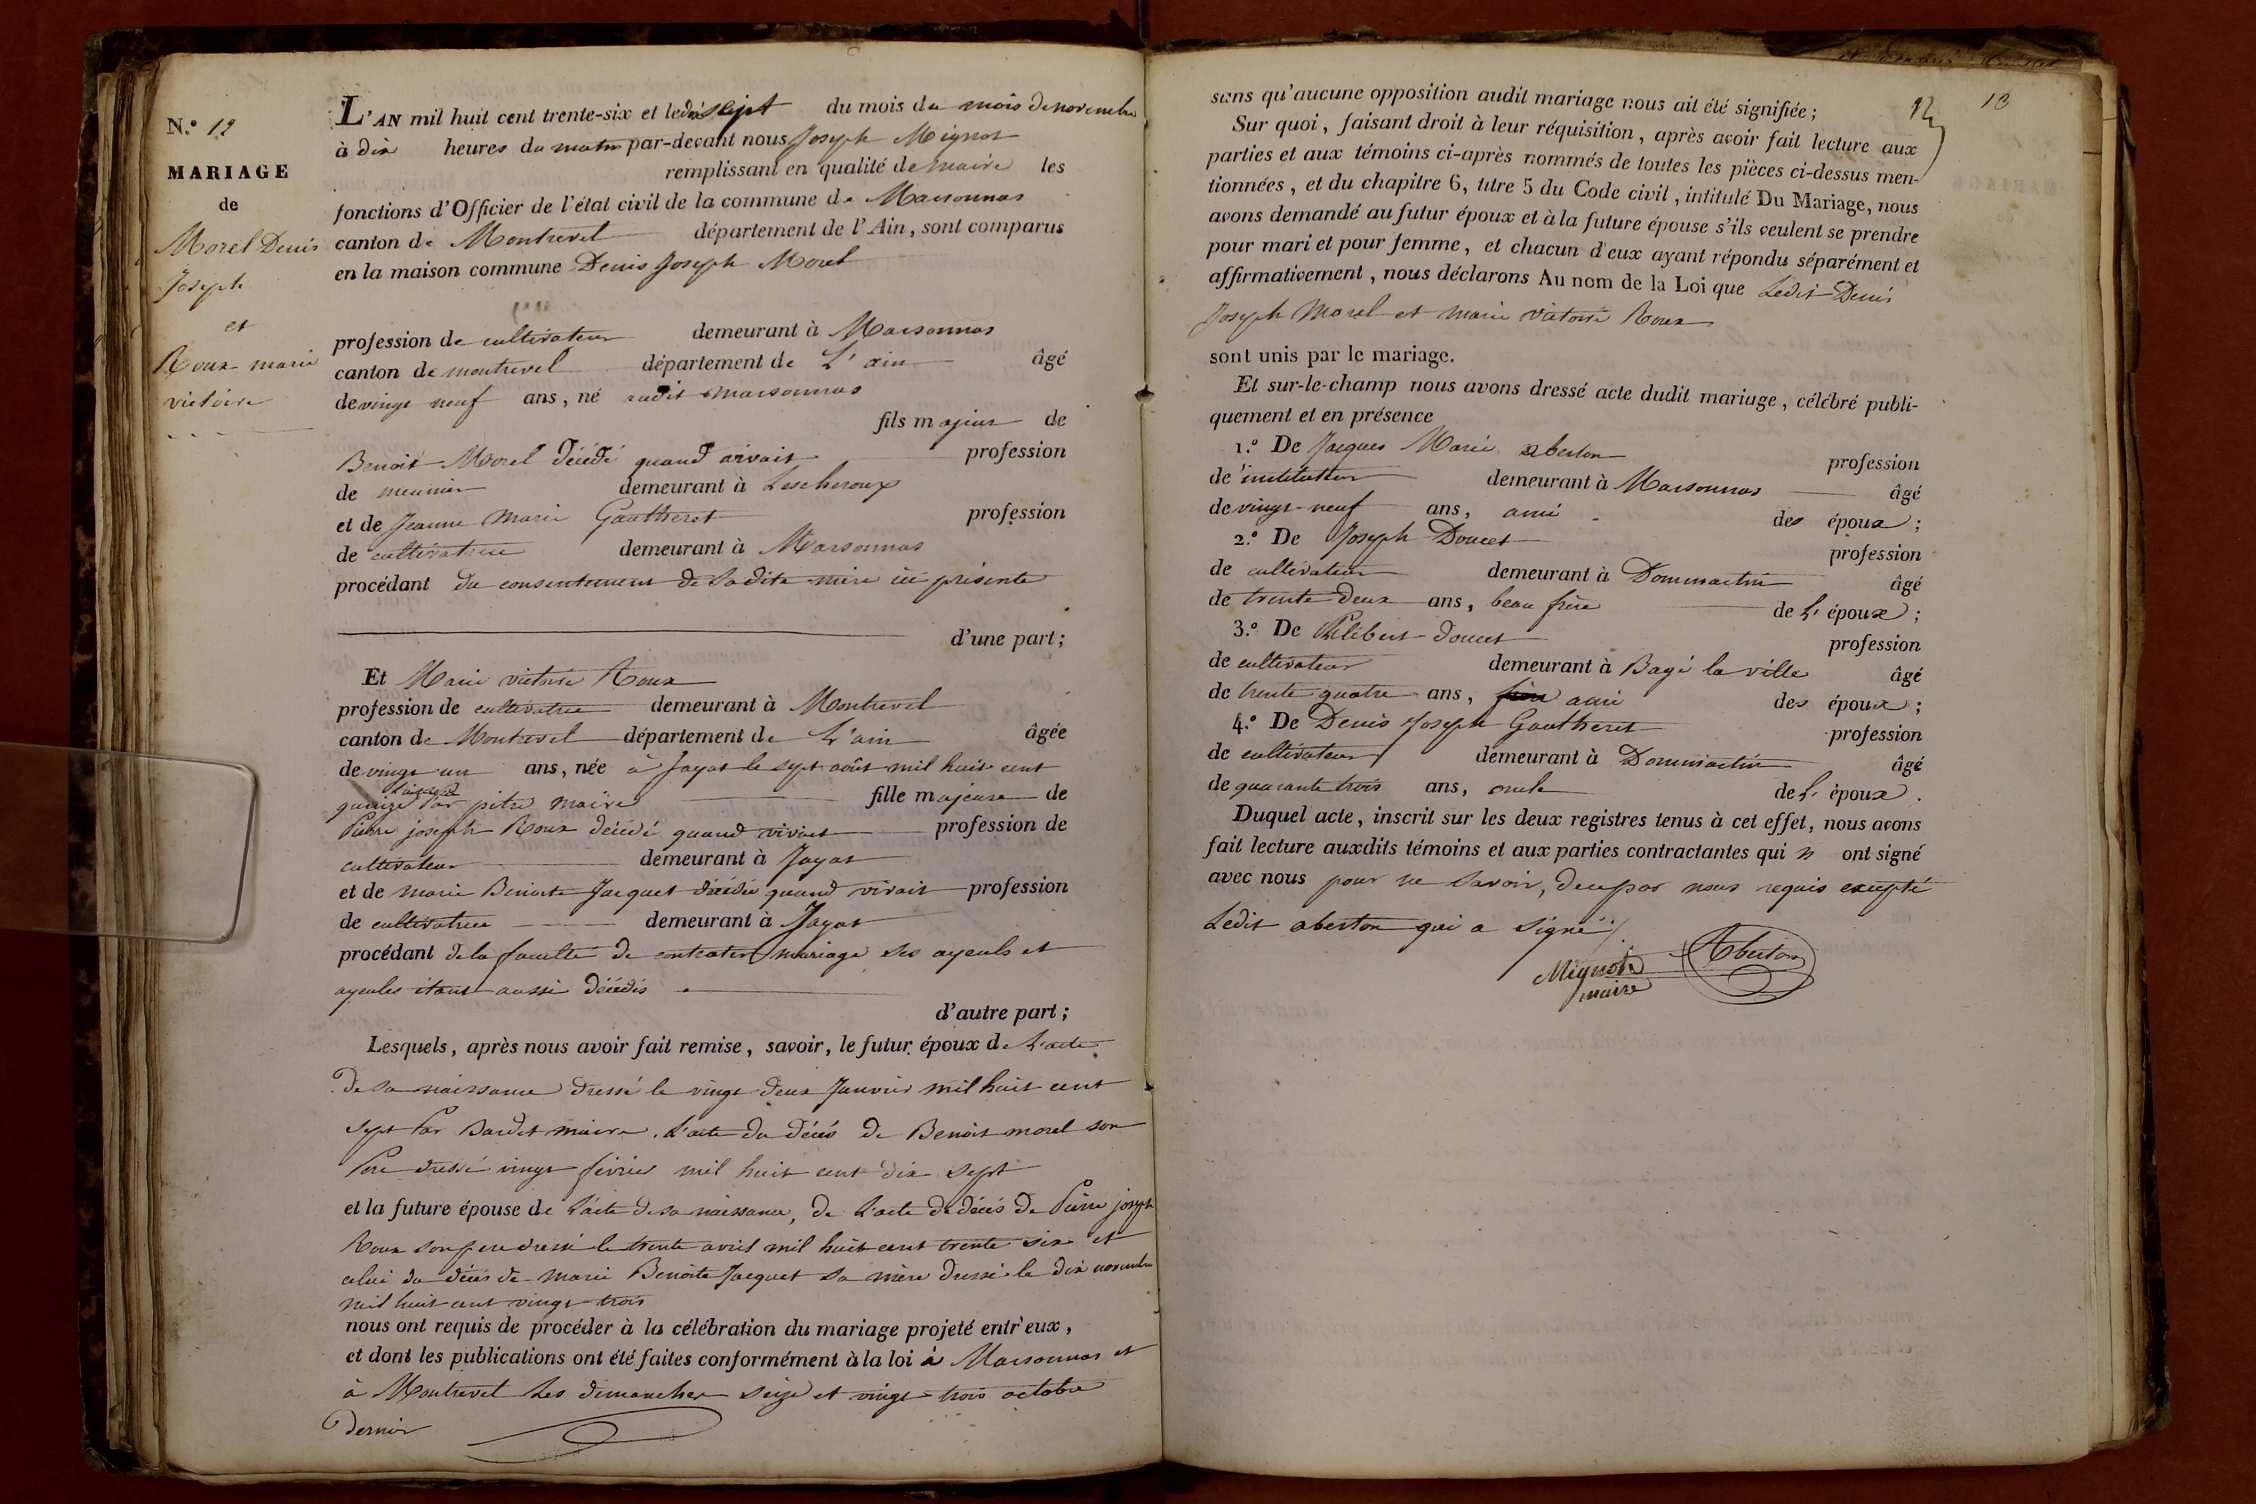 N.° 12
MARIAGE
de
Morel Denis
Joseph
et
Roux marie
victoire
L'AN mil huit cent trente-six et le dix sept du mois du mois de novembre
à dix heures du matin par-devant nous Joseph Mignot
remplissant en qualité de maire les
fonctions d'Officier de l'état civil de la commune de Marsonnas
canton de Montrevel département de l'Ain, sont comparus
en la maison commune Denis Joseph Morel
profession de cultivateur demeurant à Marsonnas
canton de montrevel département de L'ain âgé
de vingt neuf ans, né audit marsonnas
fils majeur de
Benoit Morel décédé quand vivait profession
de meunier demeurant à Lescheroux
et de Jeanne Marie Gautheret profession
de cultivatrice demeurant à Marsonnas
procédant du consentement de Sadite mère ici présente
d'une part;
Et Marie victoire Roux
profession de cultivatrice demeurant à Montrevel
canton de Montrevel département de L'ain âgée
de vingt un ans, née à Jayat le sept août mil huit cent
quinze par pitre maire fille majeure de
Pierre joseph Roux décédé quand vivait profession de
cultivateur demeurant à Jayat
et de marie Benoite Jacquet décédée quand vivait profession
de cultivatrice demeurant à Jayat
procédant de la faculté de contracter mariage ses ayeuls et
ayeules étant aussi décédés
d'autre part;
Lesquels, après nous avoir fait remise, savoir, le futur époux de L'acte
de sa naissance dressé le vingt deux Janvier mil huit cent
sept Par Bardet maire. L'acte du décés de Benoit morel son
Pere dressé vingt février mil huit cent dix sept
et la future épouse de L'acte de sa naissance, de L'acte de décés de Pierre joseph
Roux son pere dressé le trente avril mil huit cent trente six et
celui du décés de marie Benoite Jacquet sa mère dressé le dix novembre
mil huit cent vingt trois
nous ont requis de procéder à la célébration du mariage projeté entr'eux,
et dont les publications ont été faites conformément à la loi à Marsonnas et
à Montrevel Les dimanches seize et vingt-trois octobre
dernier
12 13
sans qu'aucune opposition audit mariage nous ait été signifiée;
Sur quoi, faisant droit à leur réquisition, après avoir fait lecture aux
parties et aux témoins ci-après nommés de toutes les pièces ci-dessus men-
tionnées, et du chapitre 6, titre 5 du Code civil, intitulé Du Mariage, nous
avons demandé au futur époux et à la future épouse s'ils veulent se prendre
pour mari et pour femme, et chacun d'eux ayant répondu séparément et
affirmativement, nous déclarons Au nom de la Loi que Ledit Denis
Joseph Morel et marie victoire Roux
sont unis par le mariage.
Et sur-le-champ nous avons dressé acte dudit mariage, célébré publi-
quement et en présence
1.° De Jacques Marie aberton profession
de instituteur demeurant à Marsonnas âgé
de vingt-neuf ans, ami des époux;
2.° De Joseph Doucet profession
de cultivateur demeurant à Dommartin âgé
de trente deux ans, beau frère de L'époux;
3.° De Philibert doucet profession
de cultivateur demeurant à Bagé la ville âgé
de trente quatre ans, ami des époux;
4.° De Denis Joseph Gautheret profession
de cultivateur demeurant à Dommartin âgé
de quarante trois ans, oncle de L'époux.
Duquel acte, inscrit sur les deux registres tenus à cet effet, nous avons
fait lecture auxdits témoins et aux parties contractantes qui n ont signé
avec nous pour ne savoir, de ce par nous requis excepté
Ledit aberton qui a signé
Mignot Aberton
maire